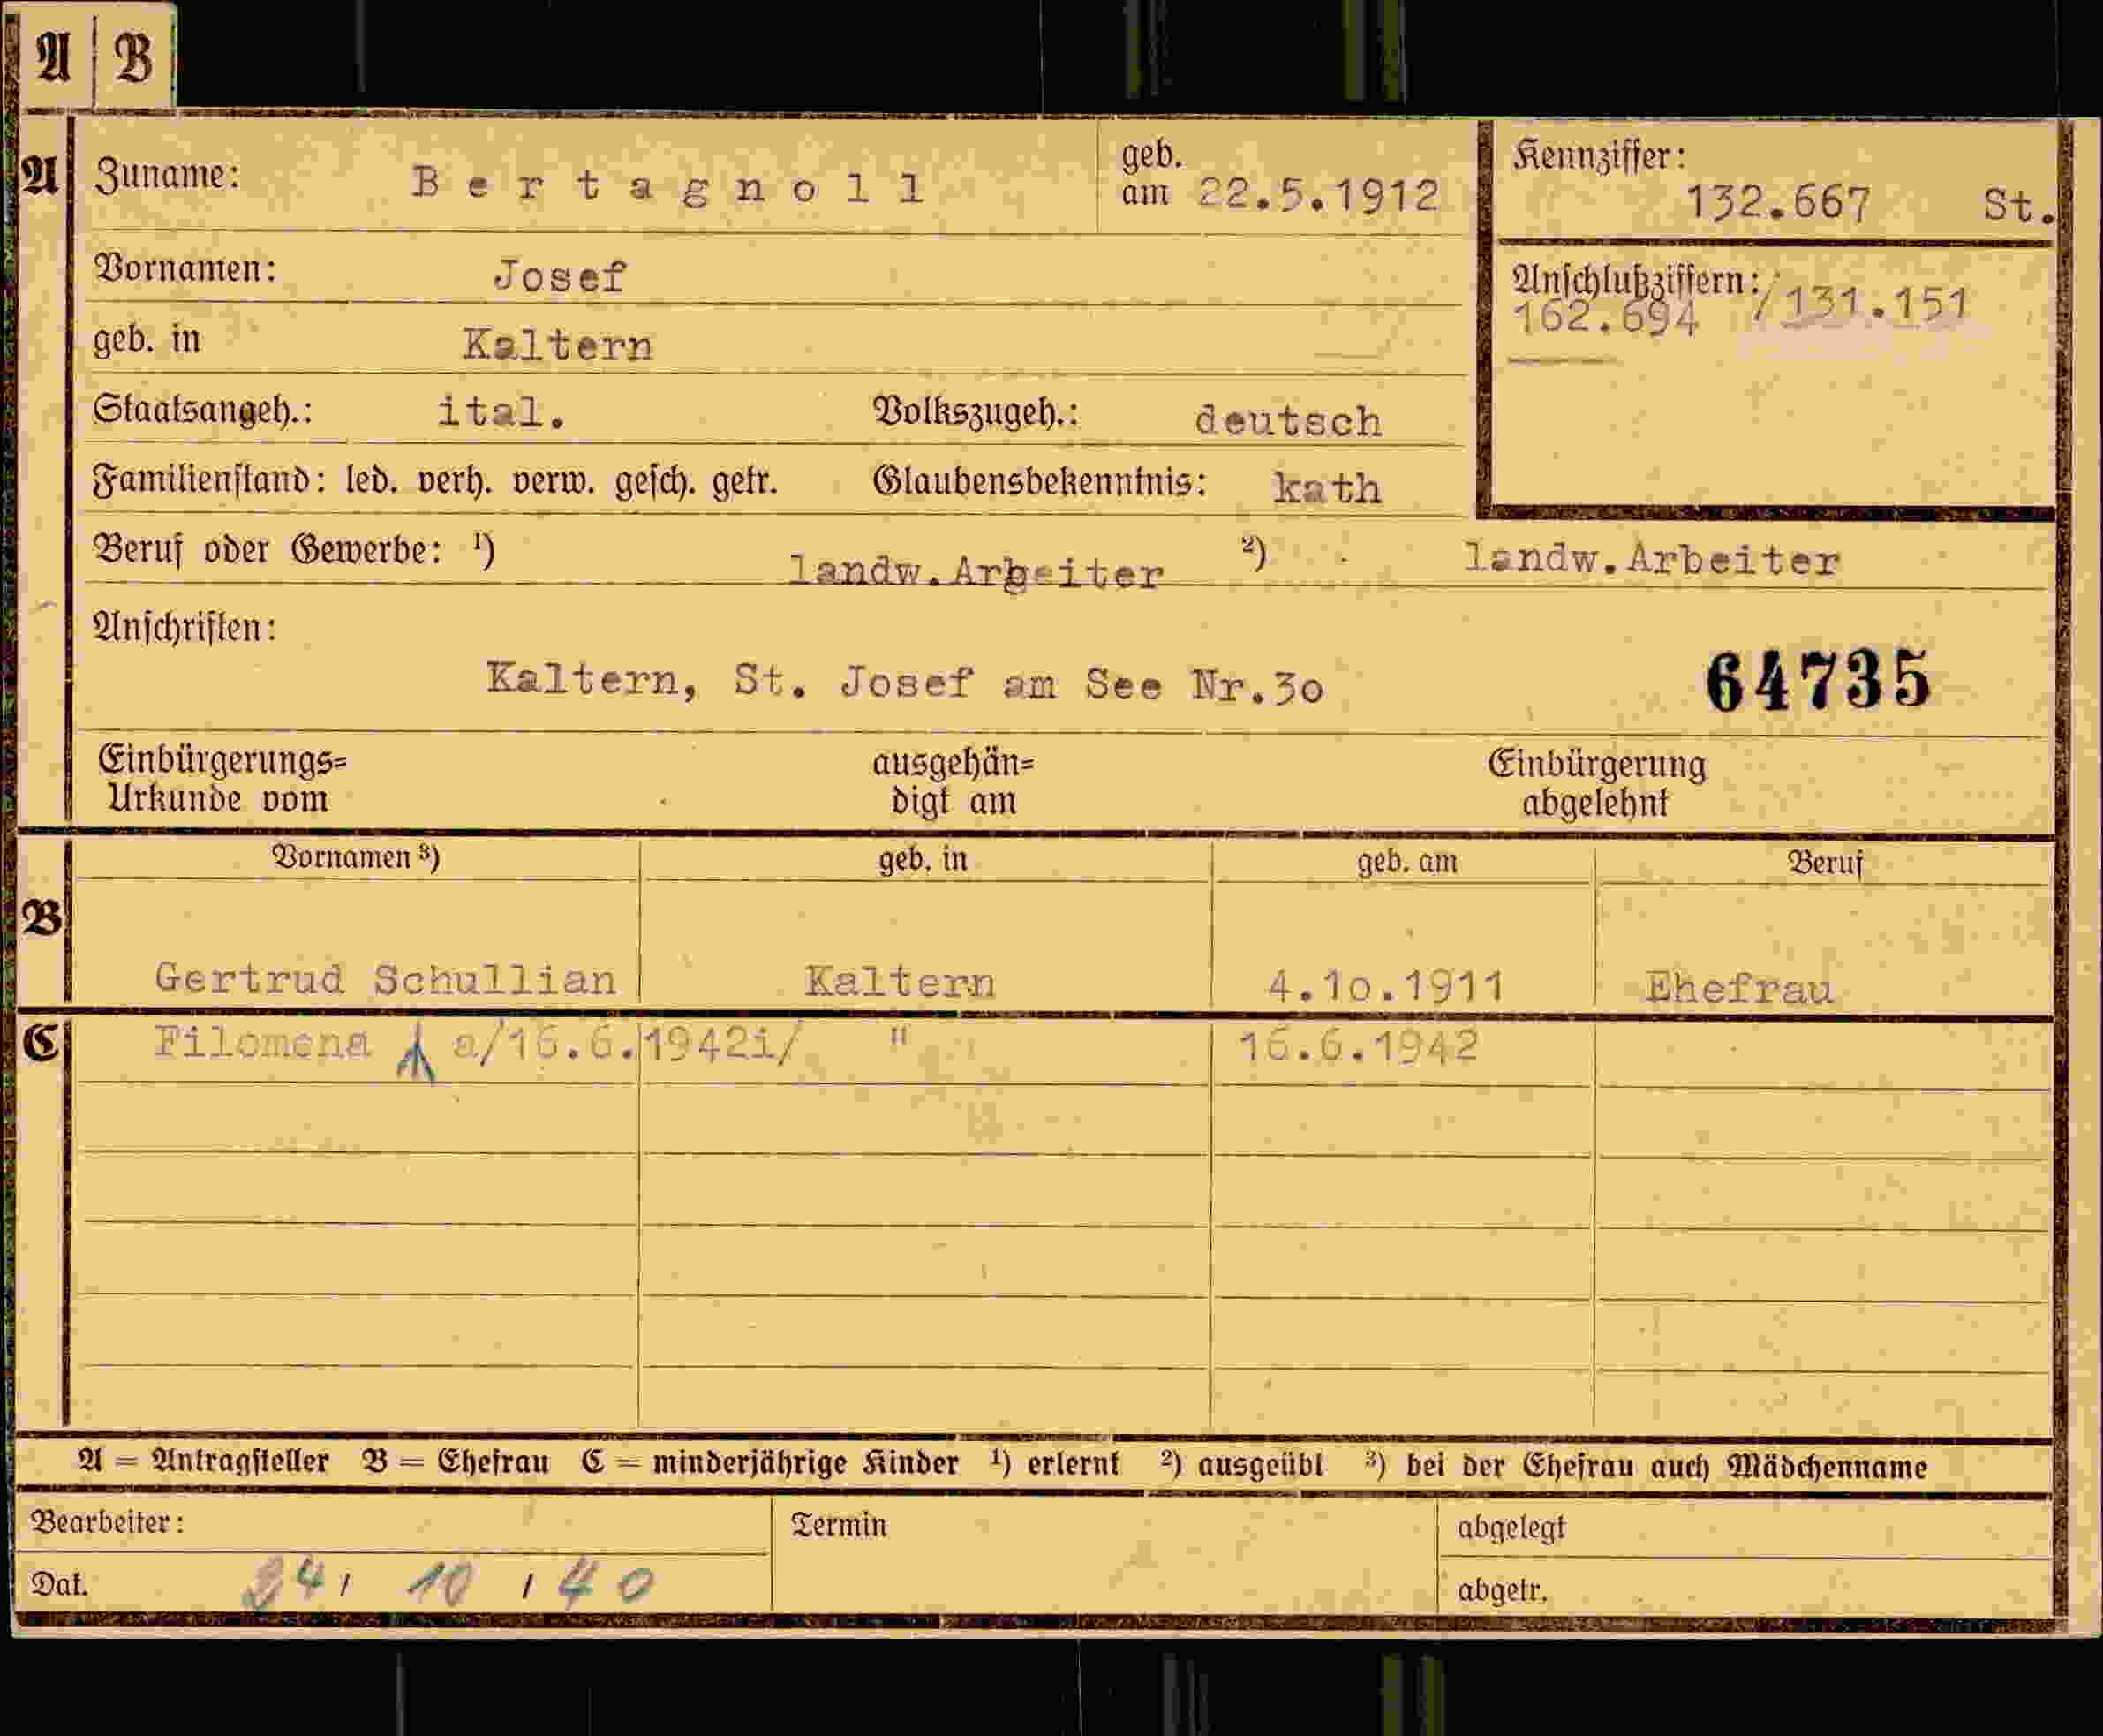 A B
A Zuname: Bertagnoll geb. am 22.5.1912 Kennziffer: 132.667 St.
Vornamen: Josef Anschlußziffern: 162.694 /131.151
geb. in Kaltern
Staatsangeh.: ital. Volkszugeh.: deutsch
Familienstand: led. verh. verw. gesch. getr. Glaubensbekenntnis: kath
Beruf oder Gewerbe: ¹) landw.Arbeiter ²) landw.Arbeiter
Anschriften:
Kaltern, St. Josef am See Nr.30 64735
Einbürgerungs= ausgehän= Einbürgerung
Urkunde vom digt am abgelehnt
Vornamen ³) geb. in geb. am Beruf
B
Gertrud Schullian Kaltern 4.10.1911 Ehefrau
C Filomena a/16.6.1942i/ " 16.6.1942
A = Antragsteller B = Ehefrau C = minderjährige Kinder ¹) erlernt ²) ausgeübt ³) bei der Ehefrau auch Mädchenname
Bearbeiter: Termin abgelegt
Dat. 24/ 10 / 40 abgetr.